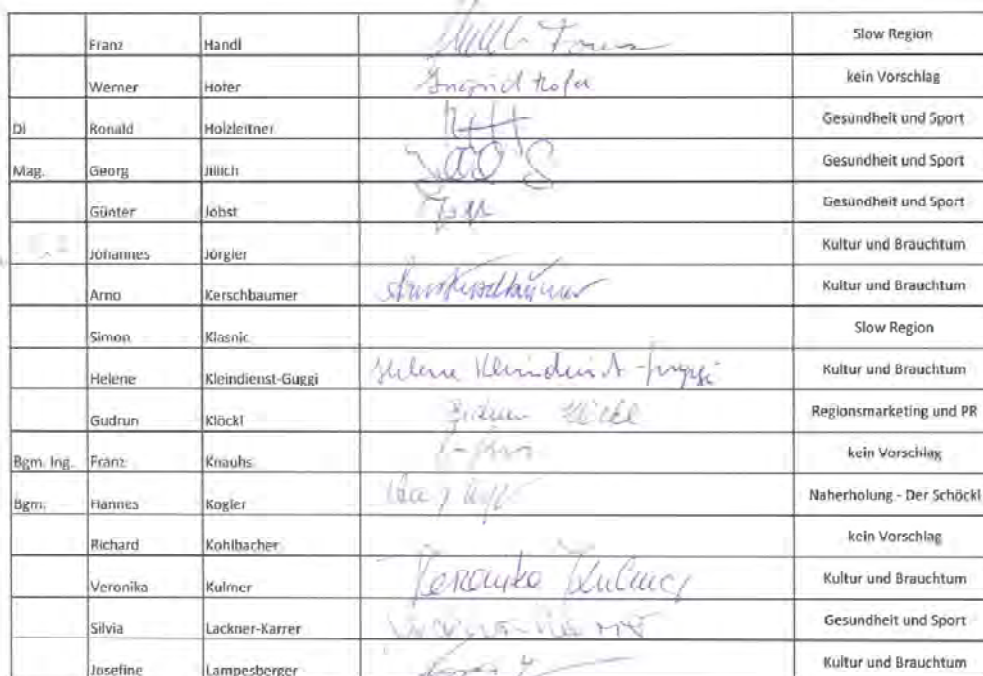 Franz Handl Slow Region
Werner Hofer Ingrid Hofer kein Vorschlag
DI Ronald Holzleitner Gesundheit und Sport
Mag. Georg Jillich Gesundheit und Sport
Günter Jobst Gesundheit und Sport
Johannes Jörgler Kultur und Brauchtum
Arno Kerschbaumer Arno Kerschbaumer Kultur und Brauchtum
Simon Klasnic Slow Region
Helene Kleindienst-Guggi Helene Kleindienst-Guggi Kultur und Brauchtum
Gudrun Klöckl Gudrun Klöckl Regionsmarketing und PR
Bgm. Ing. Franz Knauhs kein Vorschlag
Bgm. Hannes Kogler Naherholung - Der Schöckl
Richard Kohlbacher kein Vorschlag
Veronika Kulmer Veronika Kulmer Kultur und Brauchtum
Silvia Lackner-Karrer Gesundheit und Sport
Josefine Lampesberger Kultur und Brauchtum